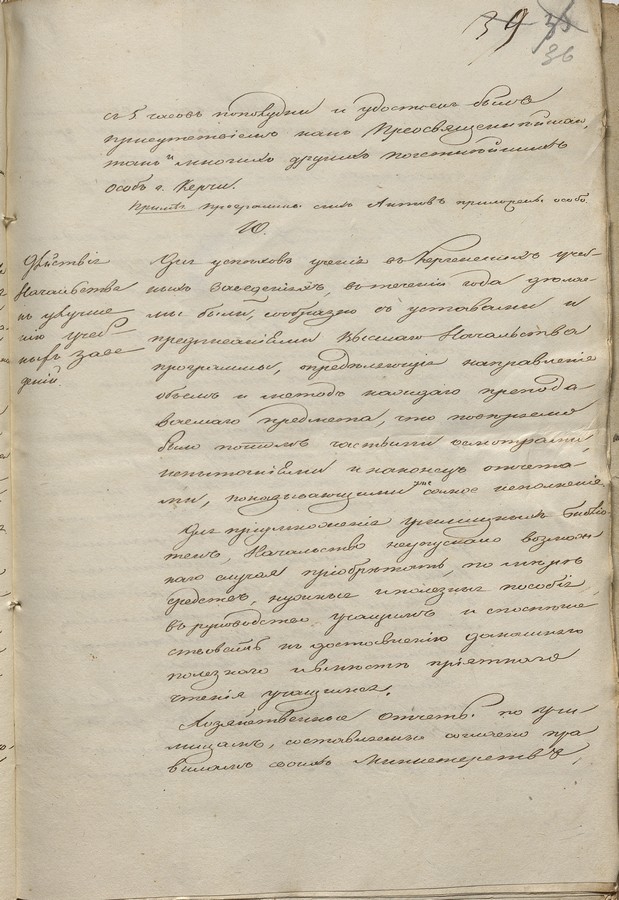 39 35
36
съ 5 часовъ пополудни и удостоенъ былъ
присутствіемъ какъ Преосвященнѣйшаго,
такъ и многихъ другихъ почетнѣйшихъ
особъ г. Керчи.
Примѣч. Программы сихъ Актовъ приложены особо.
10.
Дѣйствіе
Начальства
къ улучше
нію учеб
ныхъ заве
деній.
Для успѣховъ ученія въ Керченскихъ учеб-
ныхъ заведеніяхъ, въ теченіи года дѣлае-
мы были, сообразно съ уставами и
предписаніями Высшаго Начальства
программы, опредѣляющія направленіе
объемъ и методъ каждаго препода
ваемаго предмета, что повѣряемо
было потомъ частыми осмотрами,
испытаніями и наконецъ отчета-
ми, показывающими исполненіе.
Для приумноженія училищныхъ библіо
текъ, Начальство неупускало возмож-
наго случая пріобрѣтать, по мѣрѣ
средствъ, нужныя и полезныя пособія
въ руководство учащимъ и способство
ствовать къ доставленію домашняго
полезнаго и вмѣстѣ пріятнаго
чтенія учащимся.
Хозяйственные отчеты по учи-
лищамъ, составляемые согласно пра
виламъ своихъ Министерствъ,